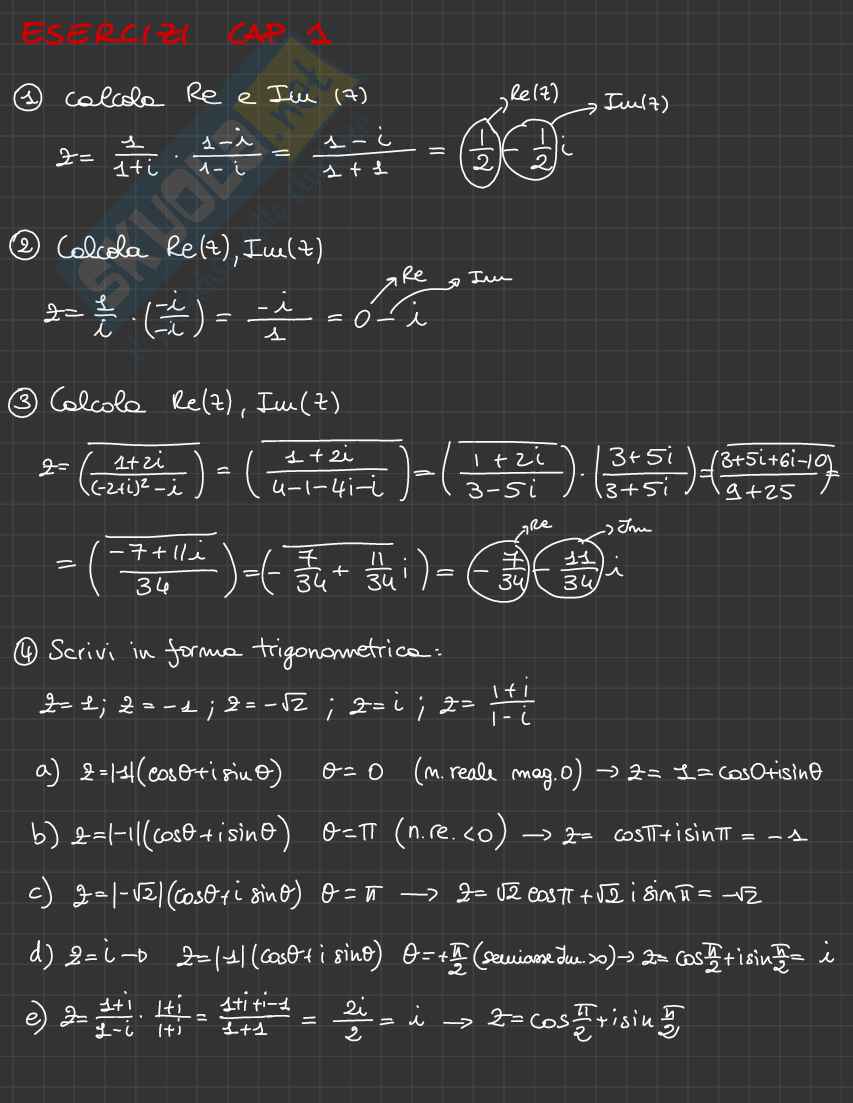 ESERCIZI CAP 1
① Calcola Re e Im (z)
Re(z) Im(z)
z = 1/(1+i) · (1-i)/(1-i) = (1-i)/(1+1) = 1/2 - 1/2 i
② Calcola Re(z), Im(z)
Re Im
z = 1/i · (-i/-i) = -i/1 = 0 - i
③ Calcola Re(z), Im(z)
z = \overline{((1+2i)/((-2+i)² - i))} = \overline{((1+2i)/(4-1-4i-i))} = \overline{((1+2i)/(3-5i))} · ((3+5i)/(3+5i)) = \overline{((3+5i+6i-10)/(9+25))} =
Re Im
= \overline{((-7+11i)/34)} = \overline{(-7/34 + 11/34 i)} = -7/34 - 11/34 i
④ Scrivi in forma trigonometrica:
z = 1; z = -1; z = -√2; z = i; z = (1+i)/(1-i)
a) z = |1|(cosθ + i sinθ) θ = 0 (n. reale mag. 0) → z = 1 = cos0 + isinθ
b) z = |-1|(cosθ + isinθ) θ = π (n. re. <0) → z = cosπ + isinπ = -1
c) z = |-√2|(cosθ + i sinθ) θ = π → z = √2 cosπ + √2 i sinπ = -√2
d) z = i → z = |1|(cosθ + i sinθ) θ = +π/2 (semiasse Im. >0) → z = cos π/2 + isin π/2 = i
e) z = (1+i)/(1-i) · (1+i)/(1+i) = (1+i+i-1)/(1+1) = 2i/2 = i → z = cos π/2 + isin π/2
SKUOLA.net